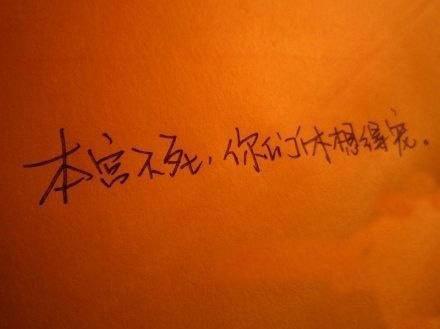 本宫不死，你们休想得宠。